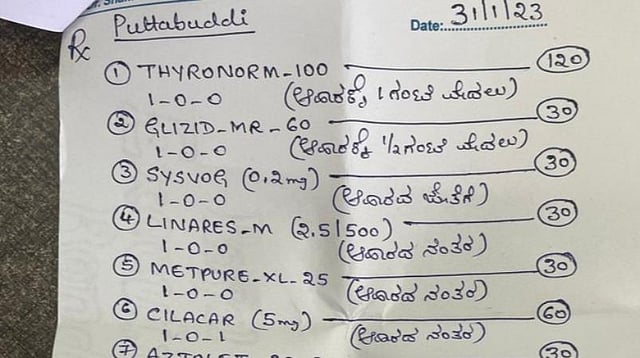 Puttabuddi
Date: 31/1/23
Rx
① THYRONORM-100 — 120
1-0-0 (ಆಹಾರಕ್ಕೆ 1 ಗಂಟೆ ಮೊದಲು)
② GLIZID-MR-60 — 30
1-0-0 (ಆಹಾರಕ್ಕೆ 1/2 ಗಂಟೆ ಮೊದಲು)
③ SYSVOG (0.2mg) — 30
1-0-0 (ಆಹಾರದ ಜೊತೆಗೆ)
④ LINARES-M (2.5/500) — 30
1-0-0 (ಆಹಾರದ ನಂತರ)
⑤ METPURE-XL-25 — 30
1-0-0 (ಆಹಾರದ ನಂತರ)
⑥ CILACAR (5mg) — 60
1-0-1 (ಆಹಾರದ ನಂತರ)
⑦ 30